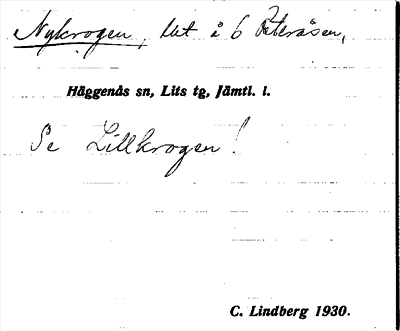 Nykrogen, lht å 6 Österåsen,
Häggenås sn, Lits tg, Jämtl. l.
Se Lillkrogen!
C. Lindberg 1930.